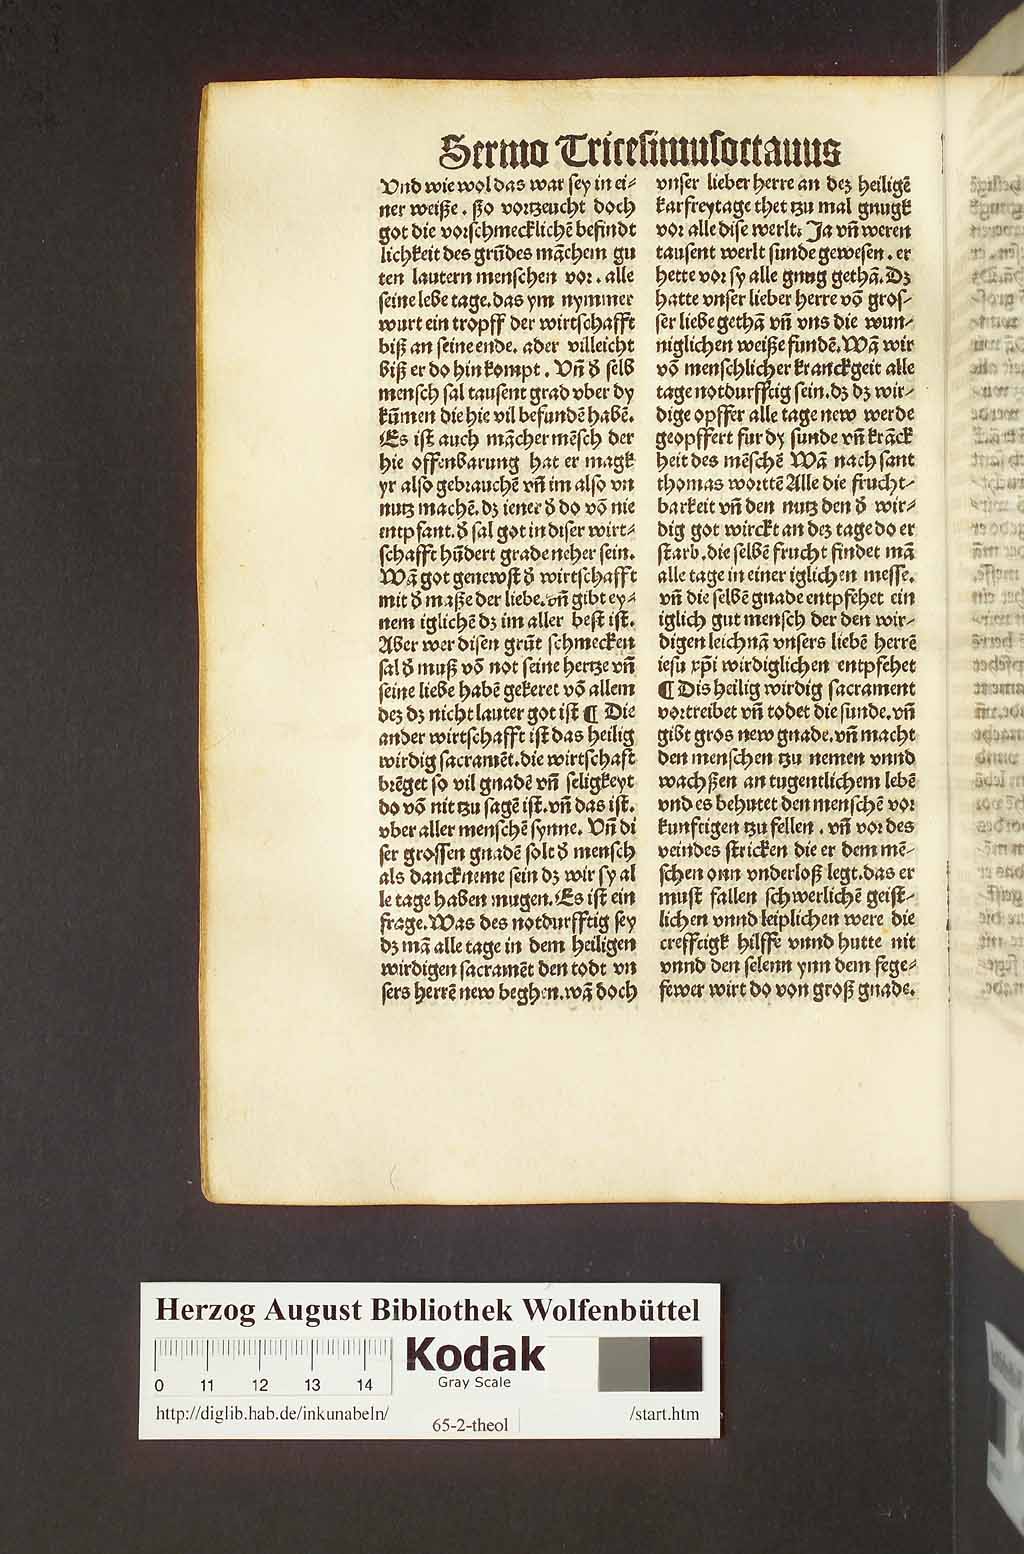 Sermo Tricesimusoctauus
Vnd wie wol das war sey in ei⸗
ner weiße. ßo vortzeucht doch
got die vorschmecklichē befindt
lichkeit des grūdes māchem gu
ten lautern menschen vor. alle
seine lebe tage. das ym nymmer
wurt ein tropff der wirtschafft
biß an seine ende. ader villeicht
biß er do hin kompt. Vn̄ d̕ selb
mensch sal tausent grad vber dy
kūmen die hie vil befundē habē.
Es ist auch mācher mēsch der
hie offenbarung hat er magk
yr also gebrauchē vn̄ im also vn
nutz machē. dz iener d̕ do vō nie
entpfant. d̕ sal got in diser wirt⸗
schafft hūdert grade neher sein.
Wā got genewst d̕ wirtschafft
mit d̕ maße der liebe. vn̄ gibt ey⸗
nem iglichē dz im aller best ist.
Aber wer disen grūt schmecken
sal d̕ muß vō not seine hertze vn̄
seine liebe habē gekeret vō allem
dez dz nicht lauter got ist ¶ Die
ander wirtschafft ist das heilig
wirdig sacramēt. die wirtschaft
brēget so vil gnadē vn̄ seligkeyt
do vō nit tzu sagē ist. vn̄ das ist.
vber aller menschē synne. Vn̄ di
ser grossen gnadē solt d̕ mensch
als danckneme sein dz wir sy al
le tage haben mugen. Es ist ein
frage. Was des notdurfftig sey
dz mā alle tage in dem heiligen
wirdigen sacramēt den todt vn
sers herrē new beghen. wā doch
vnser lieber herre an dez heiligē
karfreytage thet tzu mal gnugk
vor alle dise werlt. Ja vn̄ weren
tausent werlt sunde gewesen. er
hette vor sy alle gnug gethā. Dz
hatte vnser lieber herre vō gros⸗
ser liebe gethā vn̄ vns die wun⸗
niglichen weiße fundē. Wā wir
vō menschlicher kranckgeit alle
tage notdurfftig sein. dz dz wir⸗
dige opffer alle tage new werde
geopffert fur dy sunde vn̄ krāck
heit des mēschē Wā nach sant
thomas wortē Alle die frucht⸗
barkeit vn̄ den nutz den d̕ wir⸗
dig got wirckt an dez tage do er
starb. die selbē frucht findet mā
alle tage in einer iglichen messe.
vn̄ die selbē gnade entpfehet ein
iglich gut mensch der den wir⸗
digen leichnā vnsers liebē herrē
iesu xp̄i wirdiglichen entpfehet
¶ Dis heilig wirdig sacrament
vortreibet vn̄ todet die sunde. vn̄
gibt gros new gnade. vn̄ macht
den menschen tzu nemen vnnd
wachßen an tugentlichem lebē
vnd es behutet den menschē vor
kunftigen tzu fellen. vn̄ vor des
veindes stricken die er dem mē⸗
schen onn vnderloß legt. das er
must fallen schwerlichē geist⸗
lichen vnnd leiplichen were die
crefftigk hilffe vnnd hutte nit
vnnd den selenn ynn dem fege⸗
fewer wirt do von groß gnade.
Herzog August Bibliothek Wolfenbüttel
Kodak
Gray Scale
0 11 12 13 14
http://diglib.hab.de/inkunabeln/
65-2-theol
/start.htm